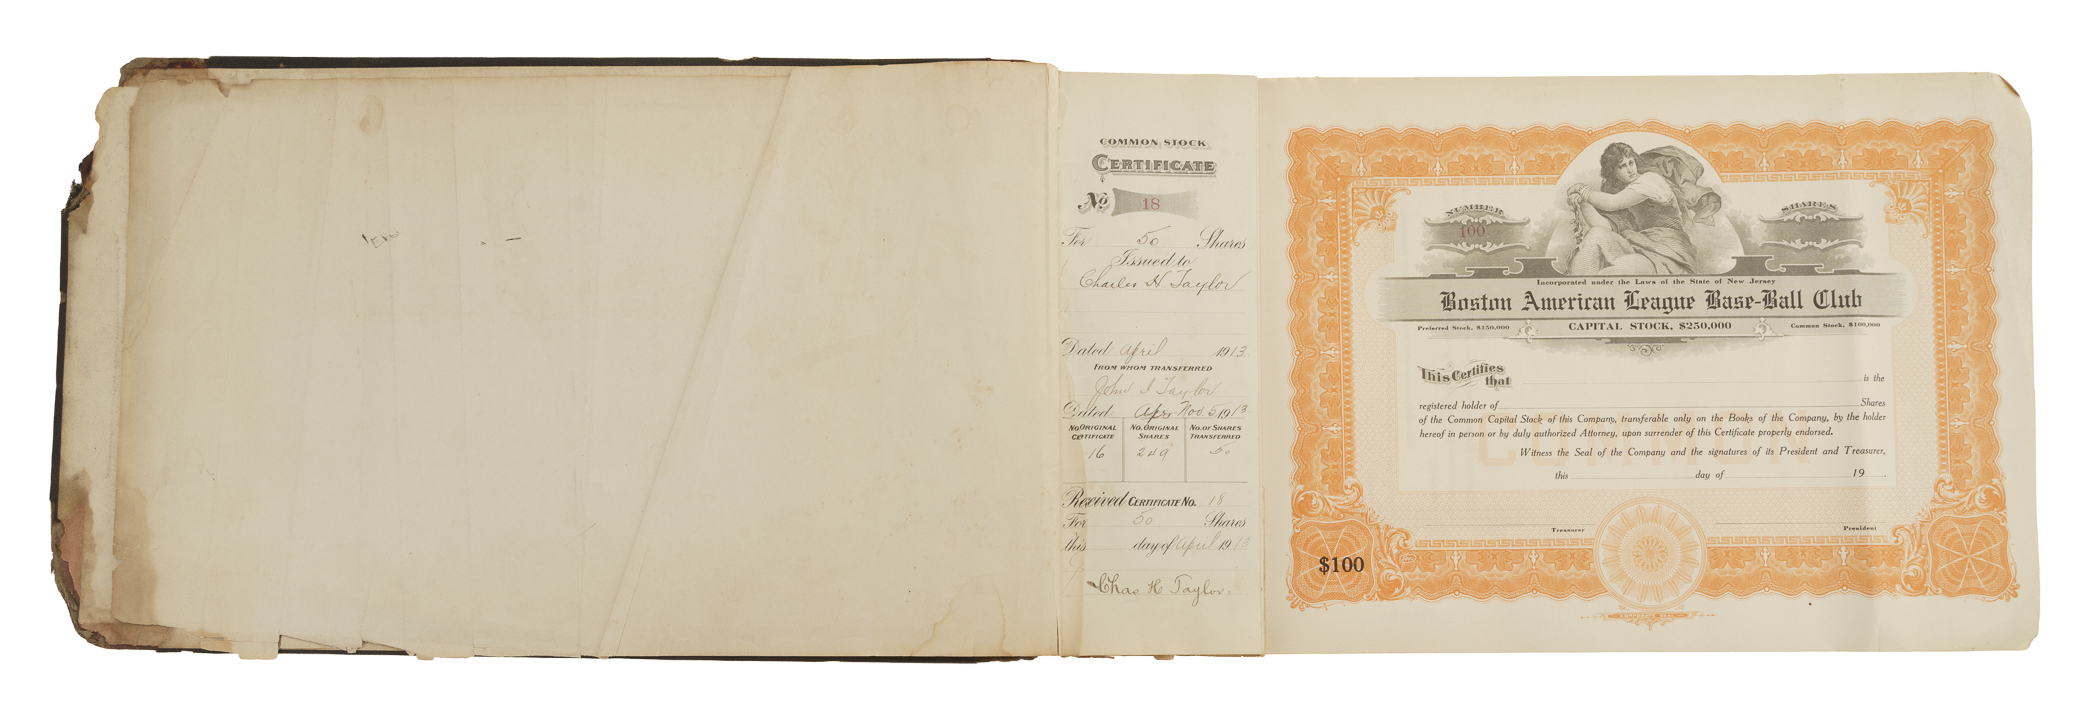 COMMON STOCK
CERTIFICATE
No 18
For 50 Shares
Issued to
Charles H. Taylor
Dated April 1913
FROM WHOM TRANSFERRED
John I Taylor
Dated Apr Nov 5 1913
No. ORIGINAL CERTIFICATE No. ORIGINAL SHARES No. OF SHARES TRANSFERRED
16 249 50
Received CERTIFICATE No. 18
For 50 Shares
this day of April 1913
Chas H Taylor
NUMBER
100
SHARES
Incorporated under the Laws of the State of New Jersey
Boston American League Base-Ball Club
Preferred Stock, $150,000 CAPITAL STOCK, $250,000 Common Stock, $100,000
This Certifies that is the
registered holder of Shares
of the Common Capital Stock of this Company, transferable only on the Books of the Company, by the holder
hereof in person or by duly authorized Attorney, upon surrender of this Certificate properly endorsed.
COMMON
Witness the Seal of the Company and the signatures of its President and Treasurer,
this day of 19
Treasurer President
$100